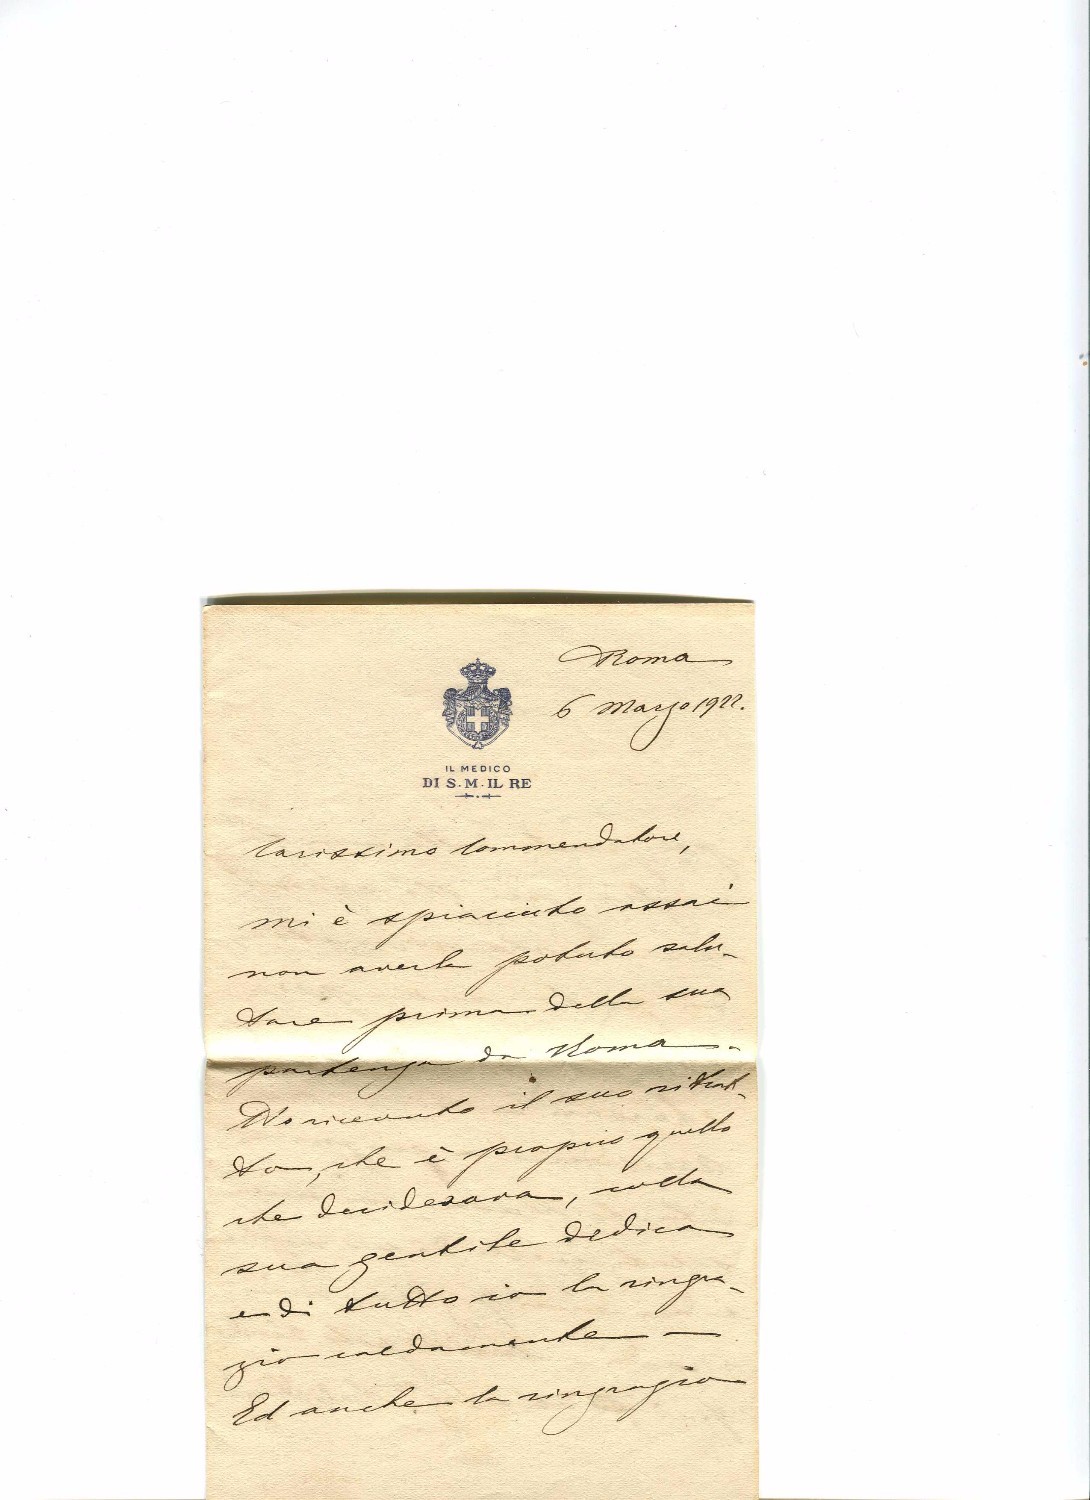 Roma
6 Marzo 1922.
IL MEDICO
DI S. M. IL RE
Carissimo Commendatore,
mi è spiaciuto assai
non averla potuto salu-
tare prima della sua
partenza da Roma.
Ho ricevuto il suo ritrat-
to, che è proprio quello
che desideravo, colla
sua gentile dedica
e di tutto io la ringra-
zio caldamente —
Ed anche la ringrazio